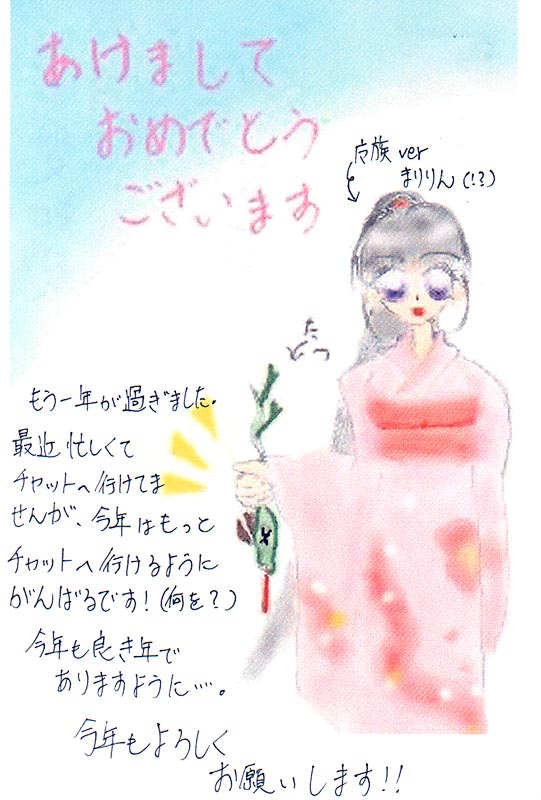 あけまして
おめでとう
ございます
族 ver
まりりん(!?)
たつ
もう一年が過ぎました。
最近忙しくて
チャットへ行けてま
せんが、今年はもっと
チャットへ行けるように
がんばるです!(何を?)
今年も良き年で
ありますように……。
今年もよろしく
お願いします!!